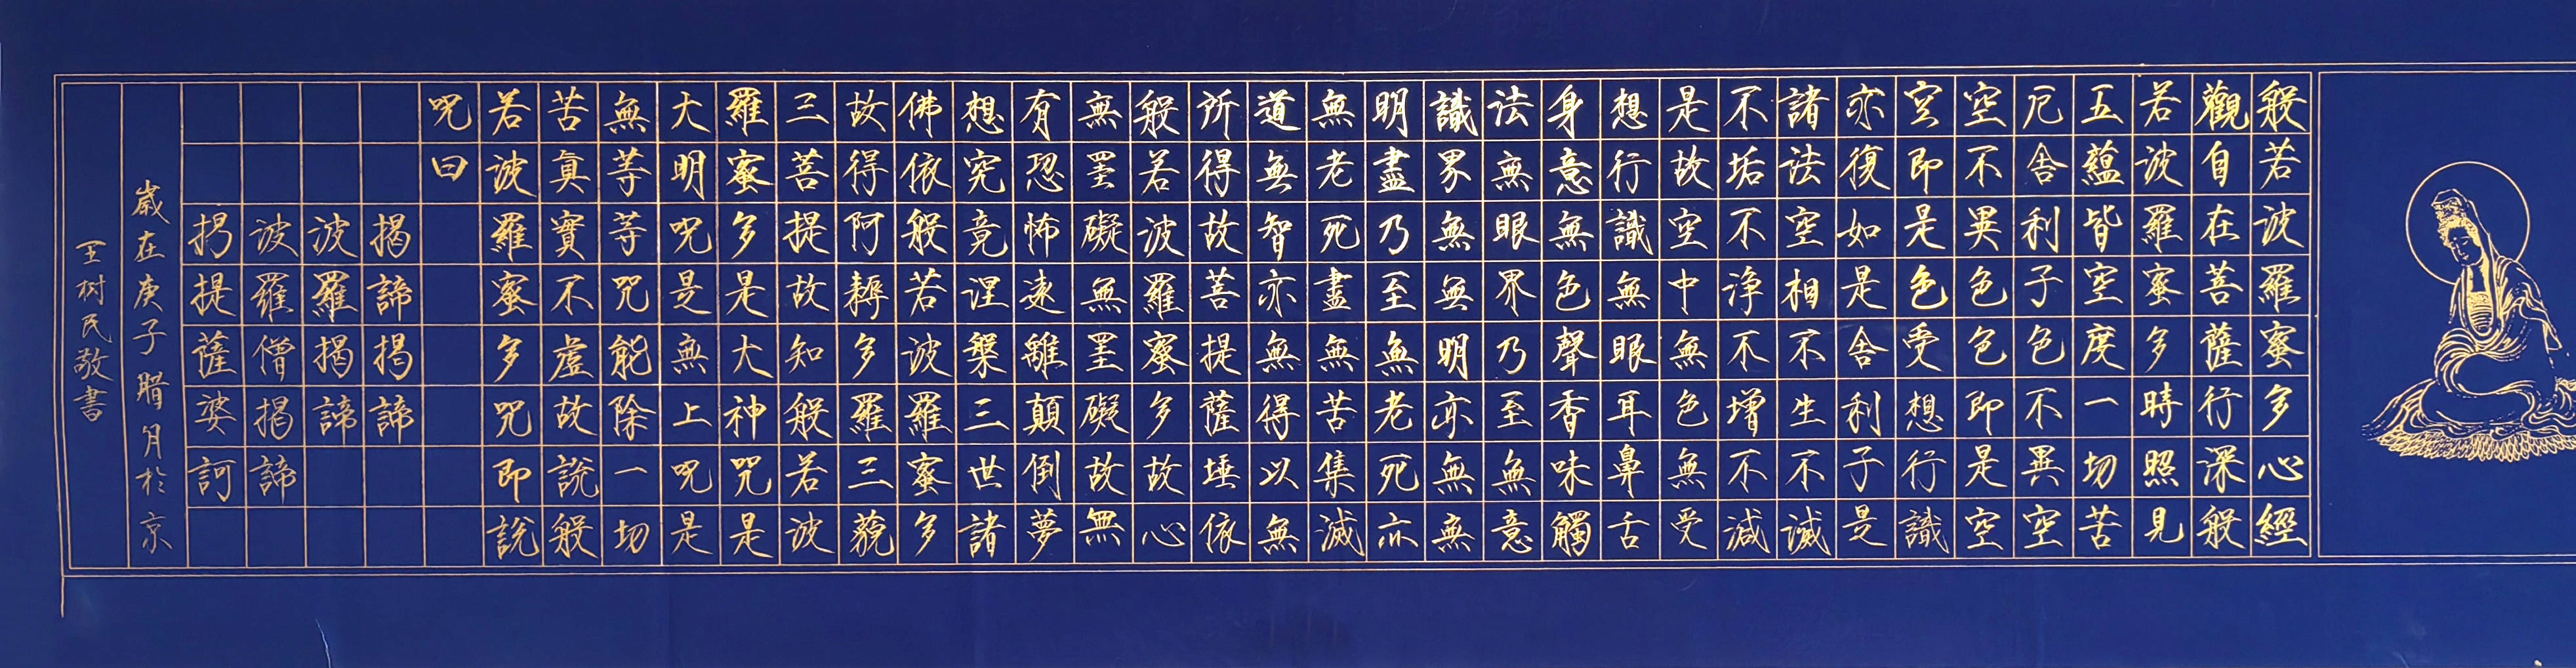 般若波羅蜜多心經
觀自在菩薩行深般
若波羅蜜多時照見
五蘊皆空度一切苦
厄舍利子色不異空
空不異色色即是空
空即是色受想行識
亦復如是舍利子是
諸法空相不生不滅
不垢不淨不增不減
是故空中無色無受
想行識無眼耳鼻舌
身意無色聲香味觸
法無眼界乃至無意
識界無無明亦無無
明盡乃至無老死亦
無老死盡無苦集滅
道無智亦無得以無
所得故菩提薩埵依
般若波羅蜜多故心
無罣礙無罣礙故無
有恐怖遠離顛倒夢
想究竟涅槃三世諸
佛依般若波羅蜜多
故得阿耨多羅三藐
三菩提故知般若波
羅蜜多是大神咒是
大明咒是無上咒是
無等等咒能除一切
苦真實不虛故說般
若波羅蜜多咒即說
咒曰
揭諦揭諦
波羅揭諦
波羅僧揭諦
揭提薩婆訶
歲在庚子腊月於京
王树民敬書